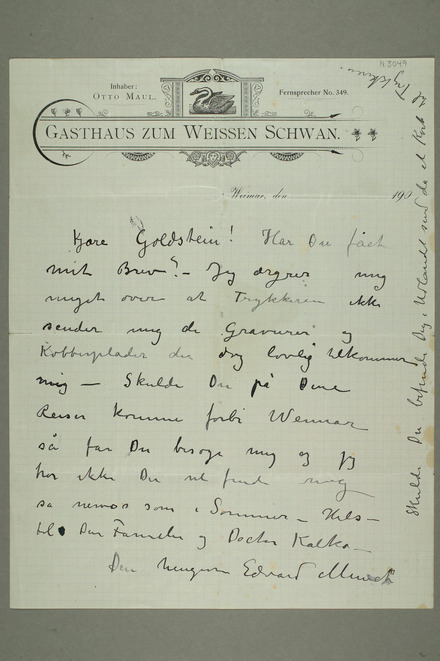 N 3049
Inhaber:
Otto Maul.
Fernsprecher No. 349.
Gasthaus zum Weissen Schwan.
Weimar, den 190
Kjære Goldstein! Har Du fået
mit Brev? – Jeg ærgrer mig
meget over at Trykkeren ikke
sender mig de Gravurer og
Kobberplader der dog lovlig tilkommer
mig – Skulde Du på Dine
Reiser komme forbi Weimar
så får Du besøge mig og jeg
tror ikke Du vil finde mig
så nervøs som i Sommer – Hils –
til Din Familie og Doctor Kalko –
Din hengivne Edvard Munch
Skulde Du befinde Dig i Udlandet send da et Kort
Trykkeren